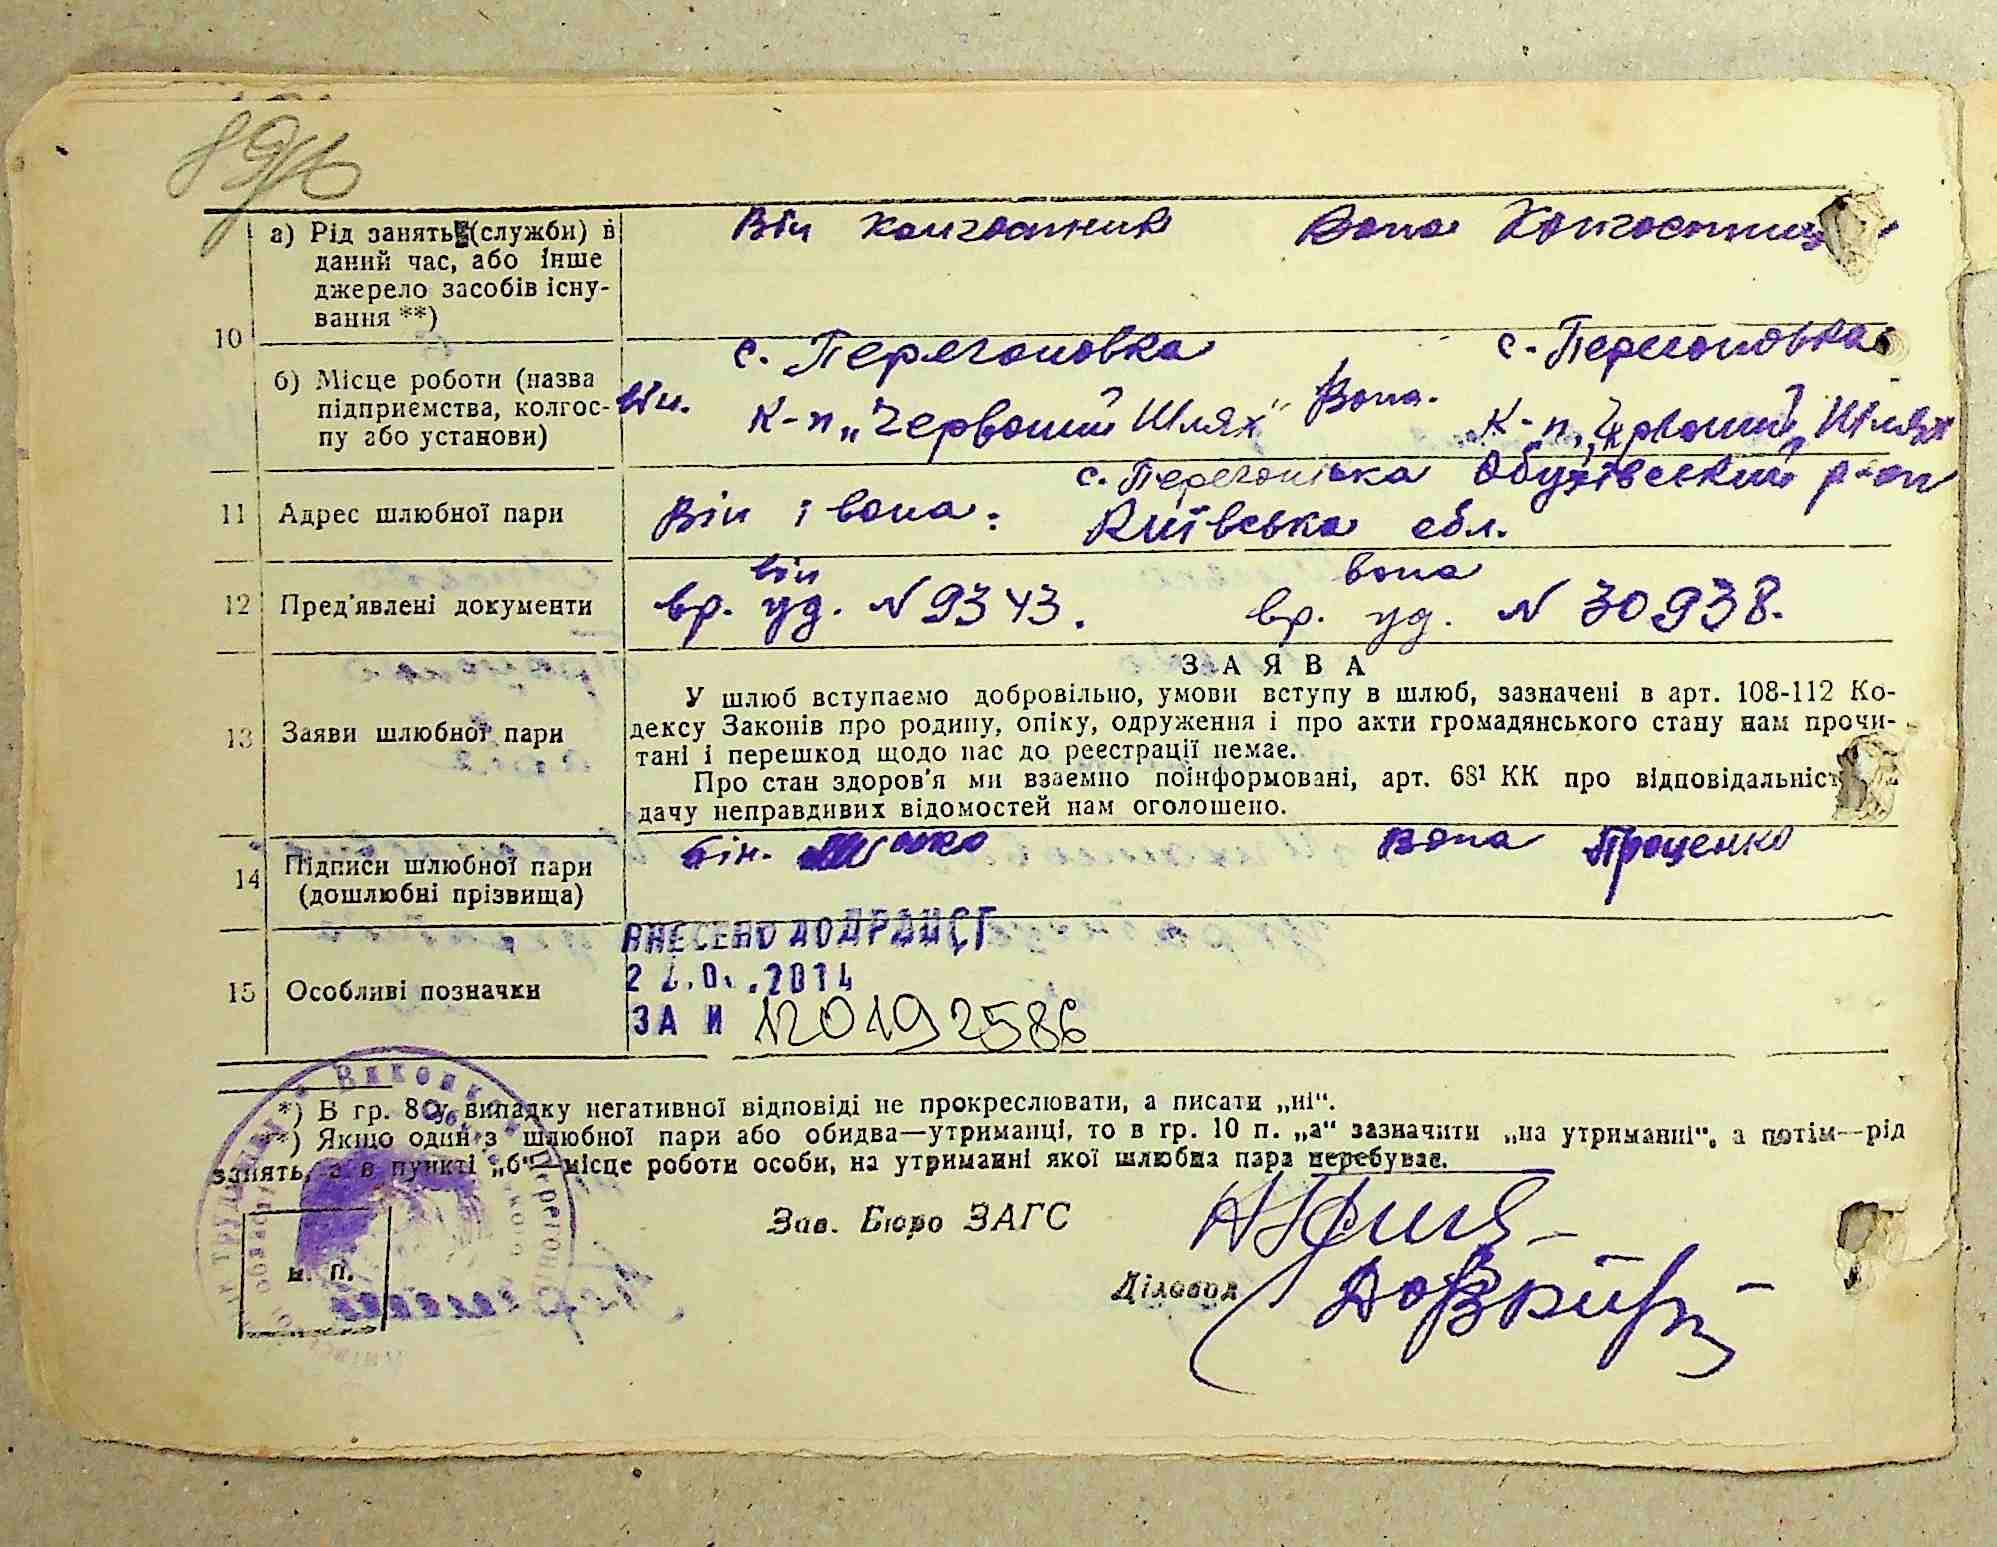 10
а) Рід занять (служби) в
даний час, або інше
джерело засобів існу-
вання **)
Він колгоспник Вона Колгоспниц
б) Місце роботи (назва
підприємства, колгос-
пу або установи)
с. Перегоновка с. Перегоновка
Він. к-п „Червоний Шлях" Вона. к-п „Червоний Шлях
11 Адрес шлюбної пари
с. Перегонівка Обухівський р-он
Він і вона: Київська обл.
12 Пред'явлені документи
він вона
вр. уд. N 9343. вр. уд. N 30938.
13 Заяви шлюбної пари
ЗАЯВА
У шлюб вступаємо добровільно, умови вступу в шлюб, зазначені в арт. 108-112 Ко-
дексу Законів про родину, опіку, одруження і про акти громадянського стану нам прочи-
тані і перешкод щодо нас до реєстрації немає.
Про стан здоров'я ми взаємно поінформовані, арт. 68¹ КК про відповідальніст
дачу неправдивих відомостей нам оголошено.
14 Підписи шлюбної пари
(дошлюбні прізвища)
Він. Вона Проценко
15 Особливі позначки
ВНЕСЕНО ДО ДРАЦСГ
2014
ЗА N 120192586
*) В гр. 8 у випадку негативної відповіді не прокреслювати, а писати „ні".
**) Якщо один з шлюбної пари або обидва—утриманці, то в гр. 10 п. „а" зазначити „на утриманні", а потім—рід
занять, а в пункті „б"—місце роботи особи, на утриманні якої шлюбна пара перебуває.
Зав. Бюро ЗАГС
Діловод
м. п.